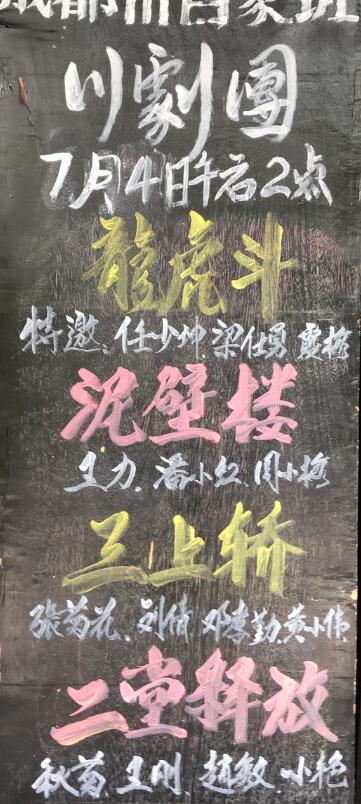 成都市百家班
川劇團
7月4日午后2点
龍虎斗
特邀、任少坤、梁仕勇 慶梅
泥壁楼
王力、潘小红、周小梅
三上轿
张菊花、刘倩 邓孝勤、黄小伟
二堂释放
秋菊、王刚、趙敏、小艳